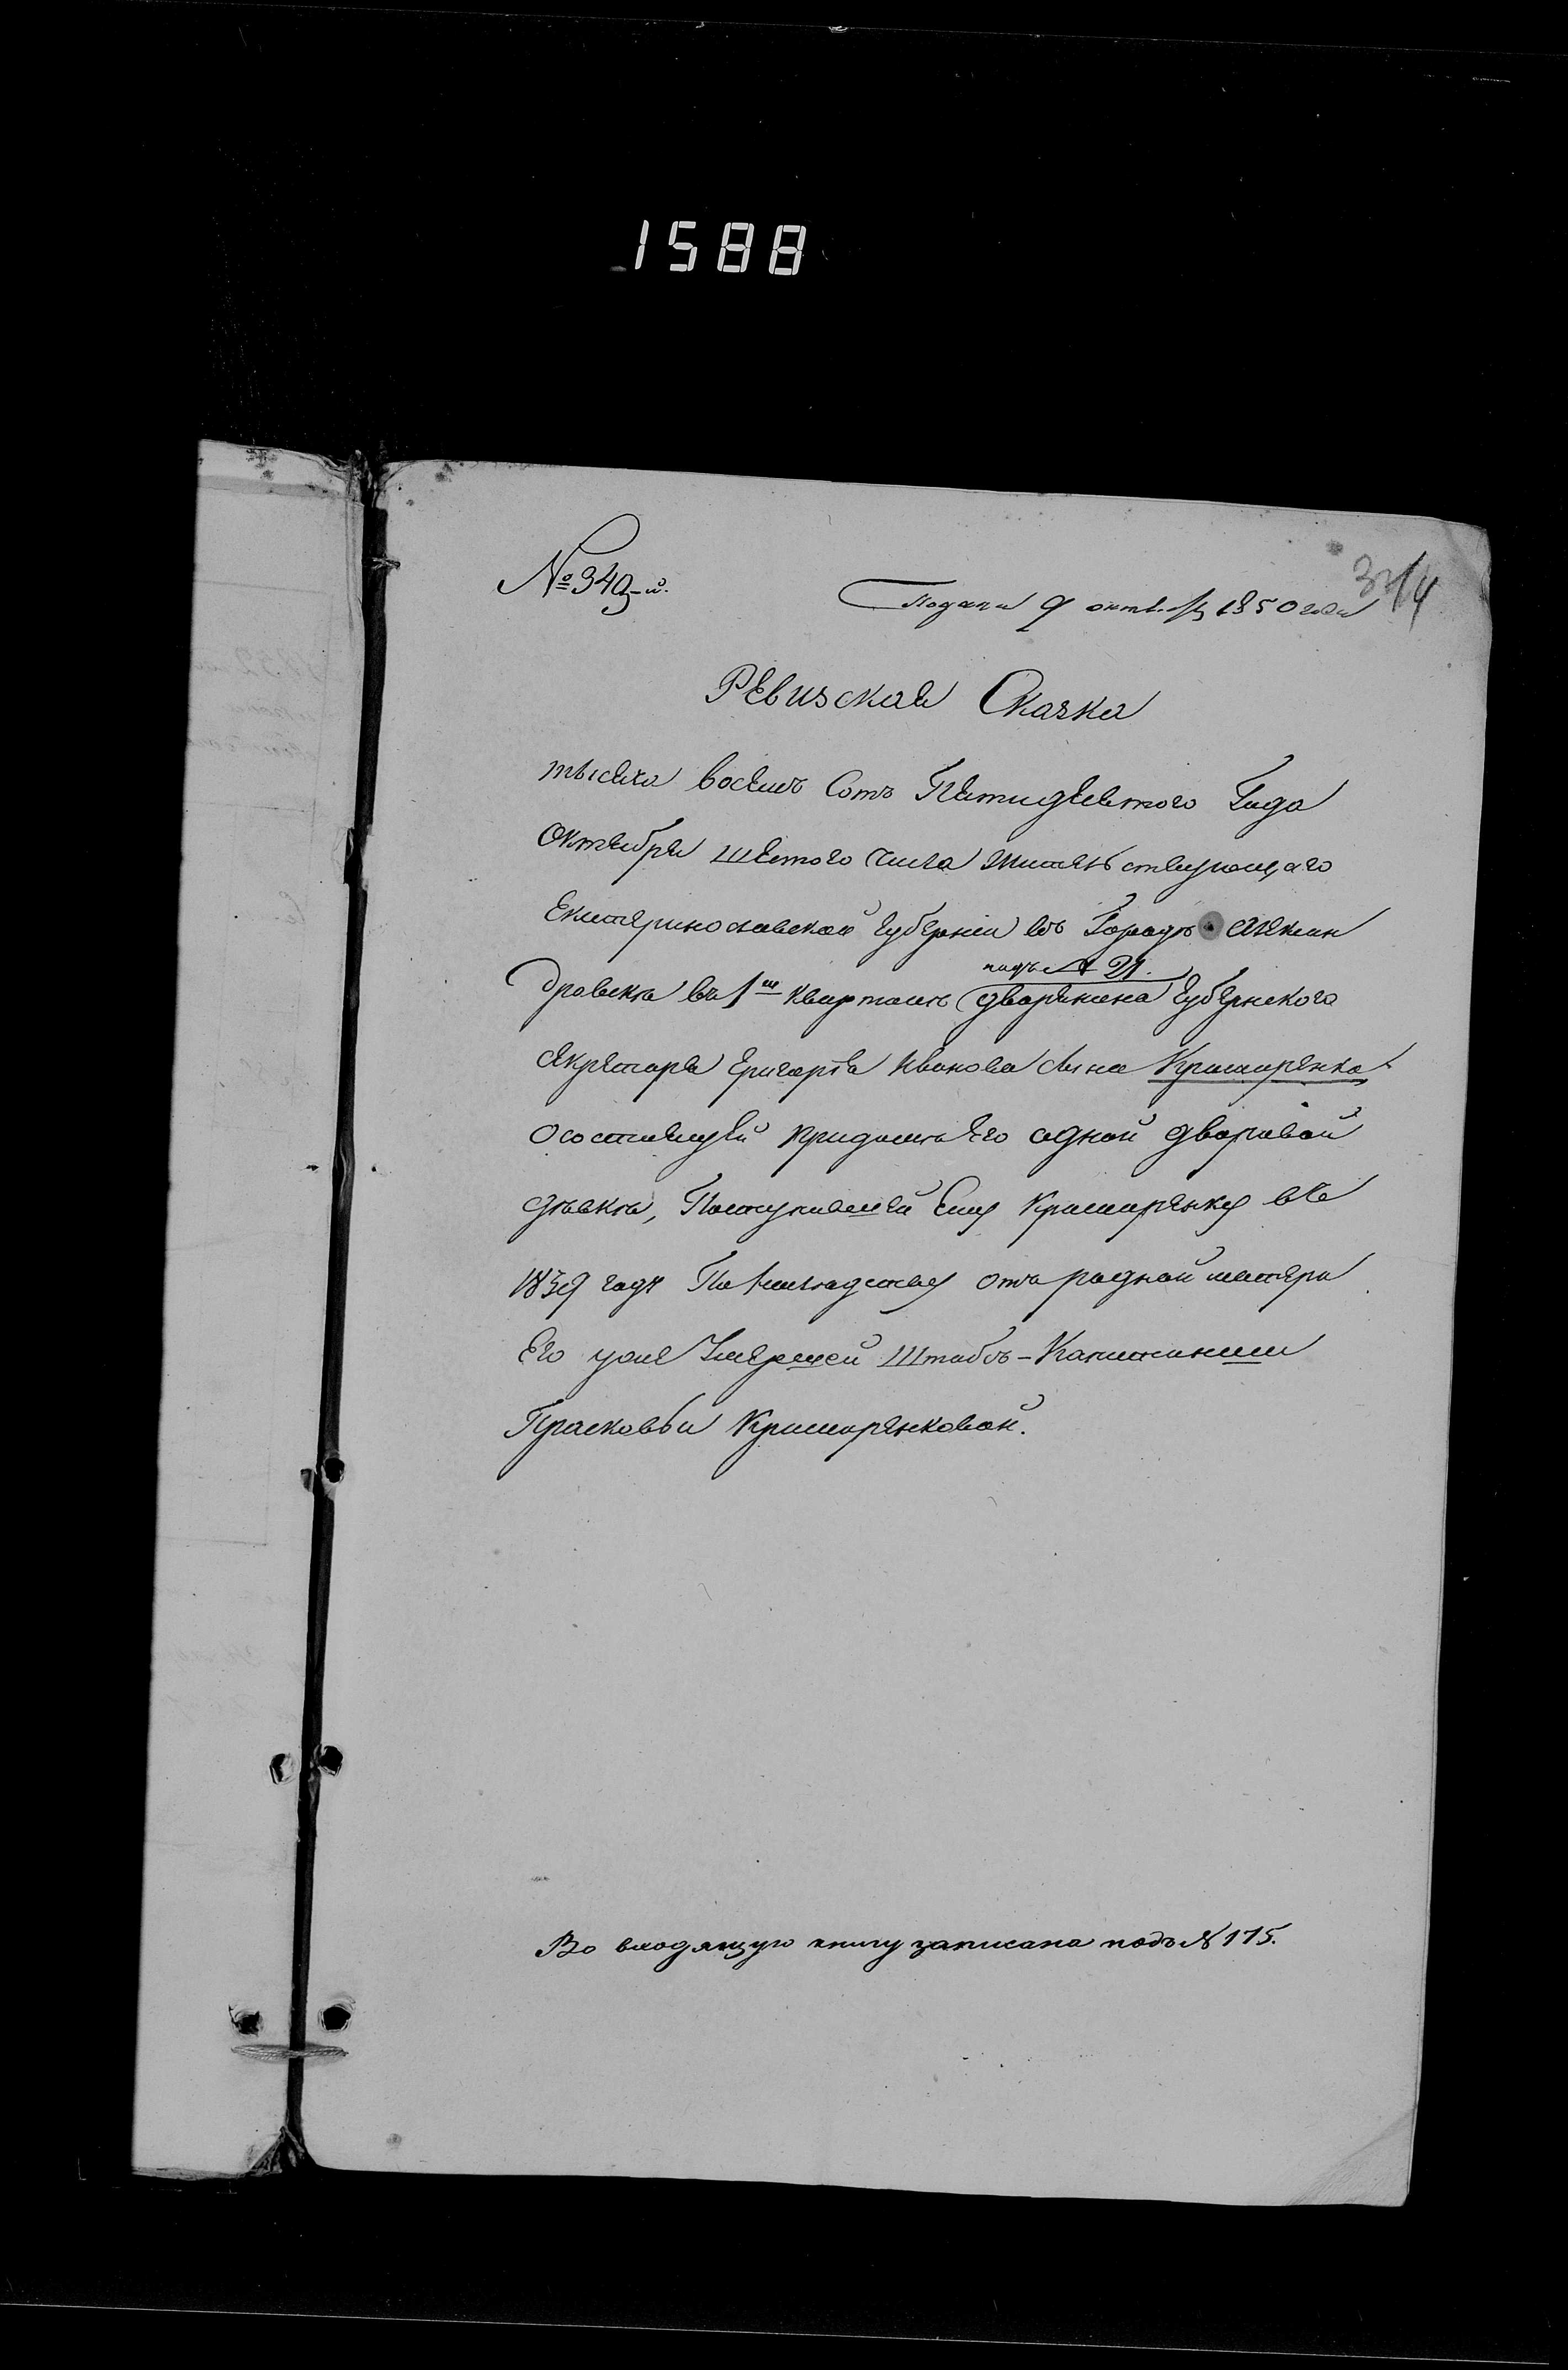 1588
№ 349-й.
Подана 9 октября 1850 года
Ревизская Сказка
тысяча восемь Сотъ Пятидесятого Года
Октября шестого числа жительствующаго
Екатеринославской Губерніи въ Городѣ Алексан
подъ № 21.
дровскѣ въ 1м кварталѣ дворянина Губернского
секретаря Григорія Иванова сына Кришаренка
осостоящей придомѣ его одной дворовой
дѣвкѣ, Поступившей Ему Кришаренку въ
1839 году По Наследству отъ родной матери
Его уже Умершей Штабсъ-Капитанши
Прасковьи Кришаренковой.
Во входящую книгу записана подъ № 175.